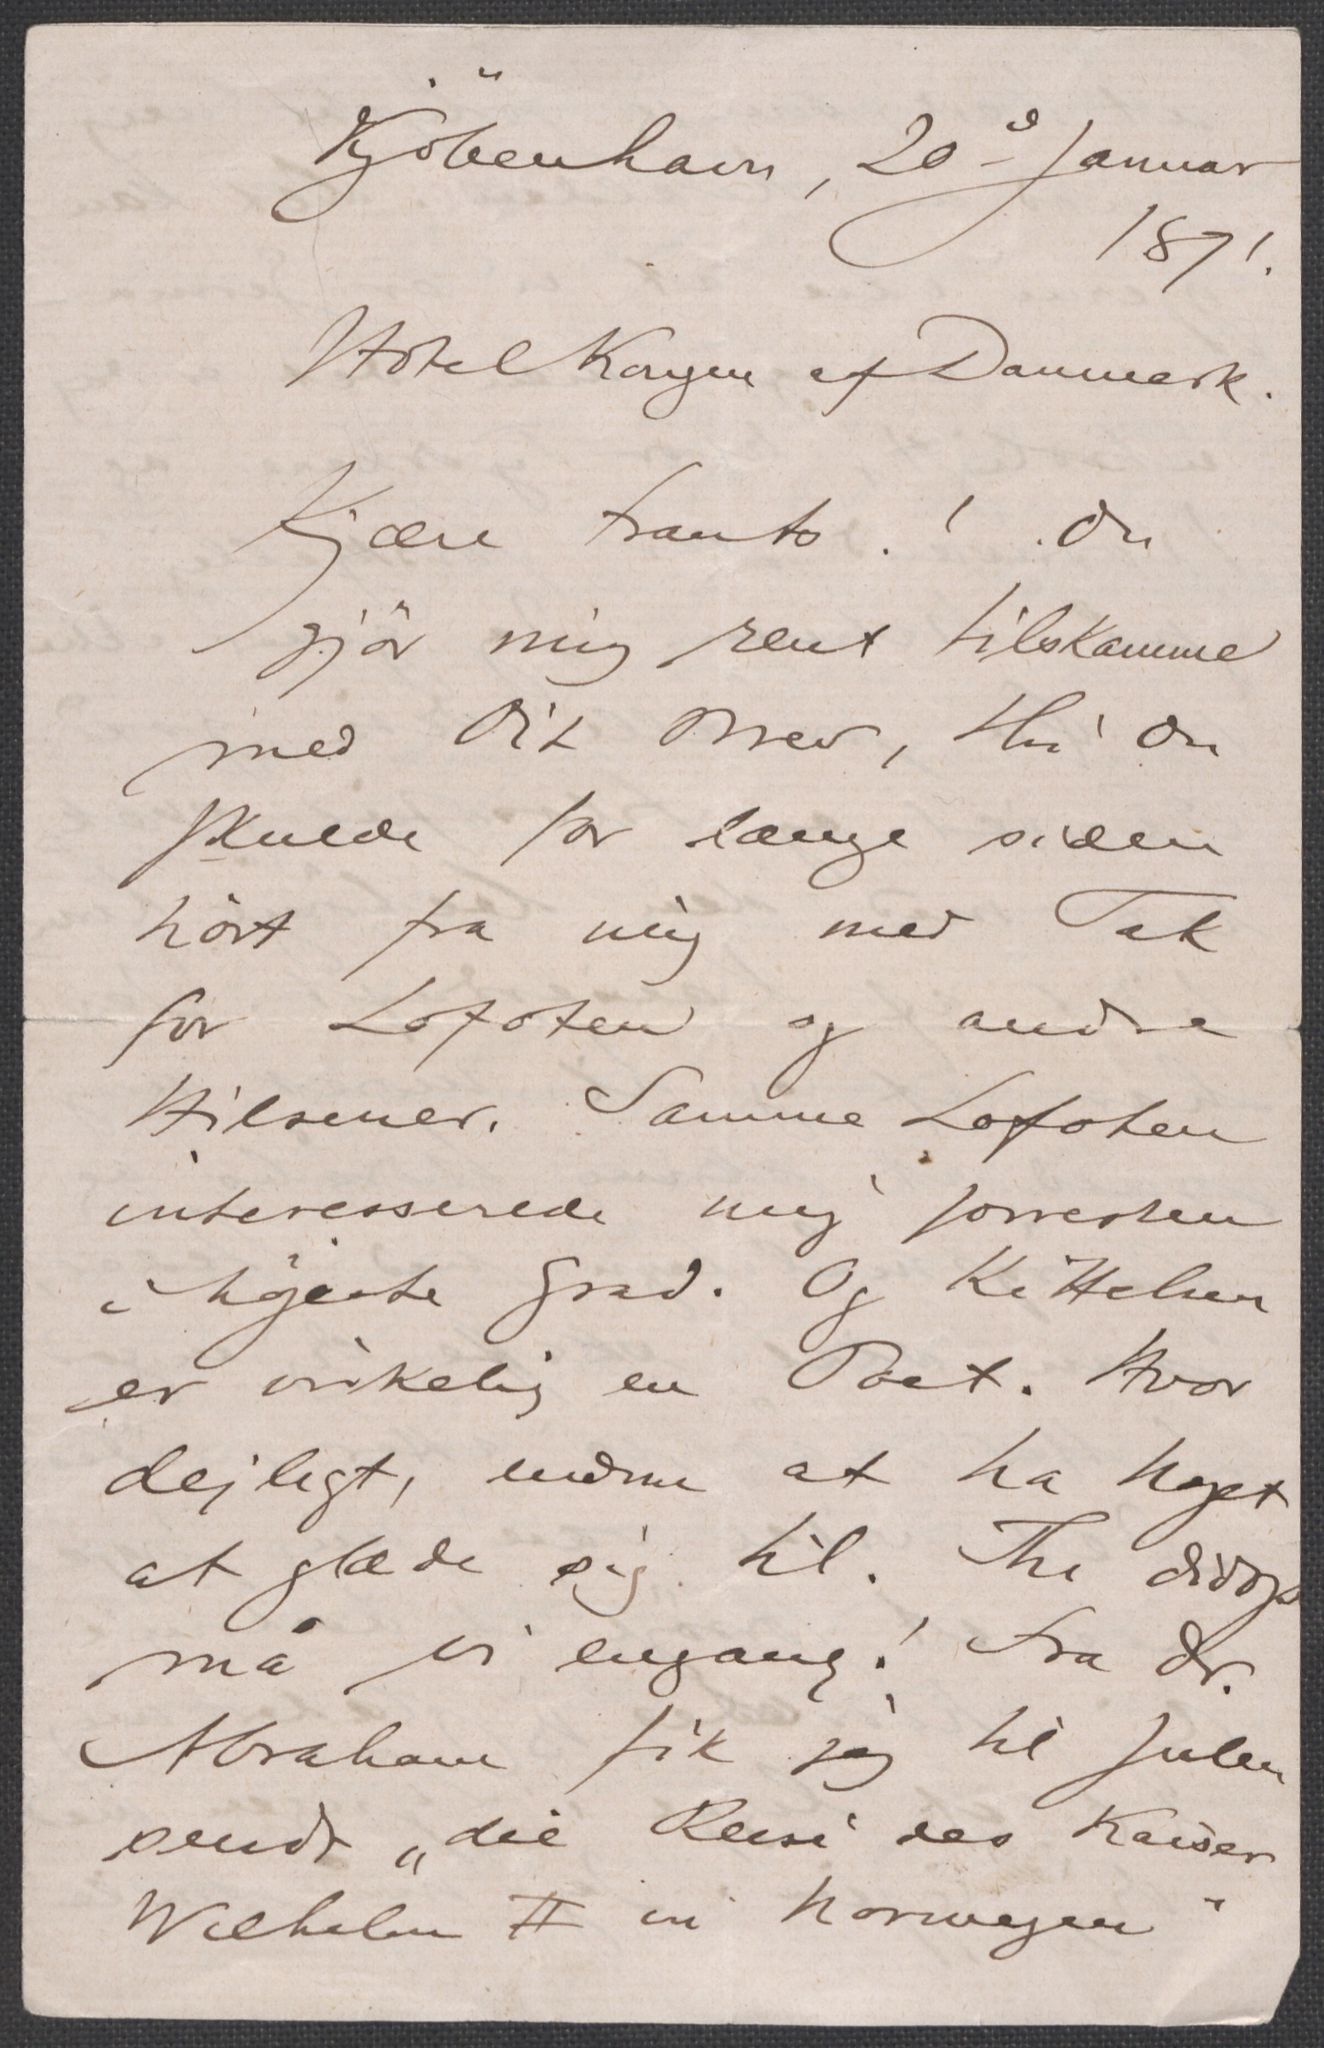 Kjöbenhavn, 20d Januar
1891.
Hôtel Kongen af Danmark.
Kjære Frants! Du
gjör mig rent tilskamme
med Dit Brev, thi Du
skulde for længe siden
hört fra mig med Tak
for Lofoten og andre
Hilsener. Samme Lofoten
interesserede mig forresten
i höjeste Grad. Og Kittelsen
er virkelig en Poet. Hvor
dejligt, endnu at ha noget
at glæde sig til. Thi didop
må vi engang! Fra Dr.
Abraham fik jeg til Julen
sendt „die Reise des Kaiser
Wilhelm II in Norwegen"